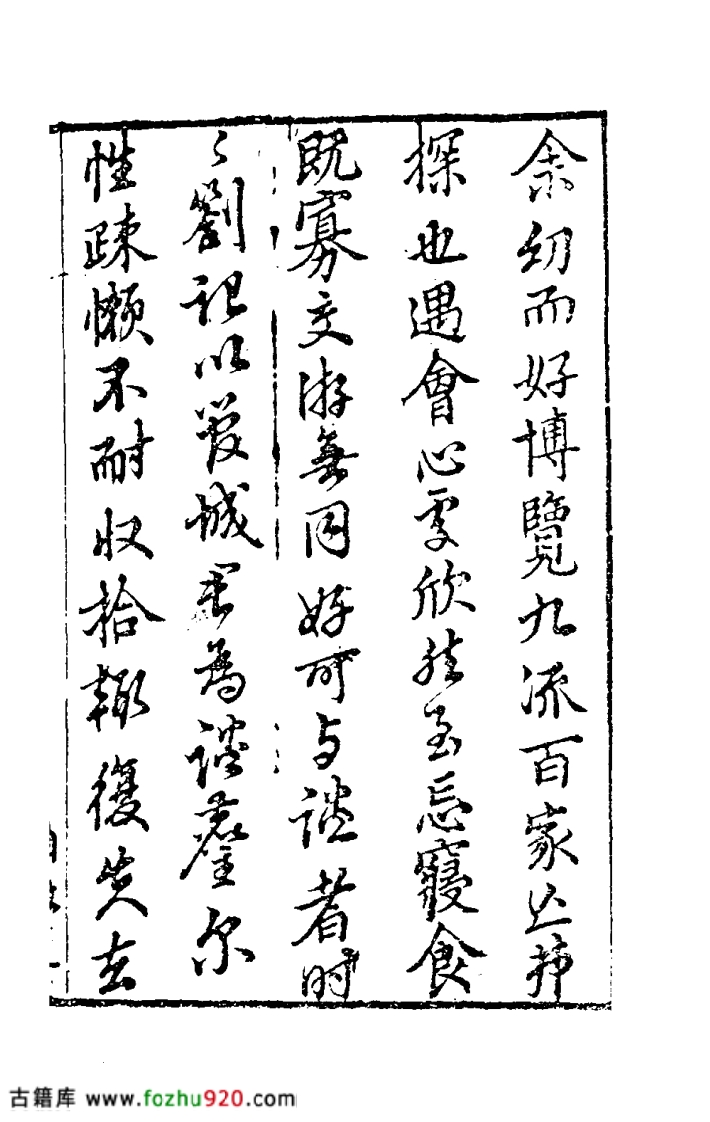 余幼而好博覽九流百家亡弗
探也遇會心處欣然至忘寢食
既寡交游無同好可与談者時
〻劄記以管城君為談麈尔
性疎懶不耐収拾輙復失去
古籍库 www.fozhu920.com